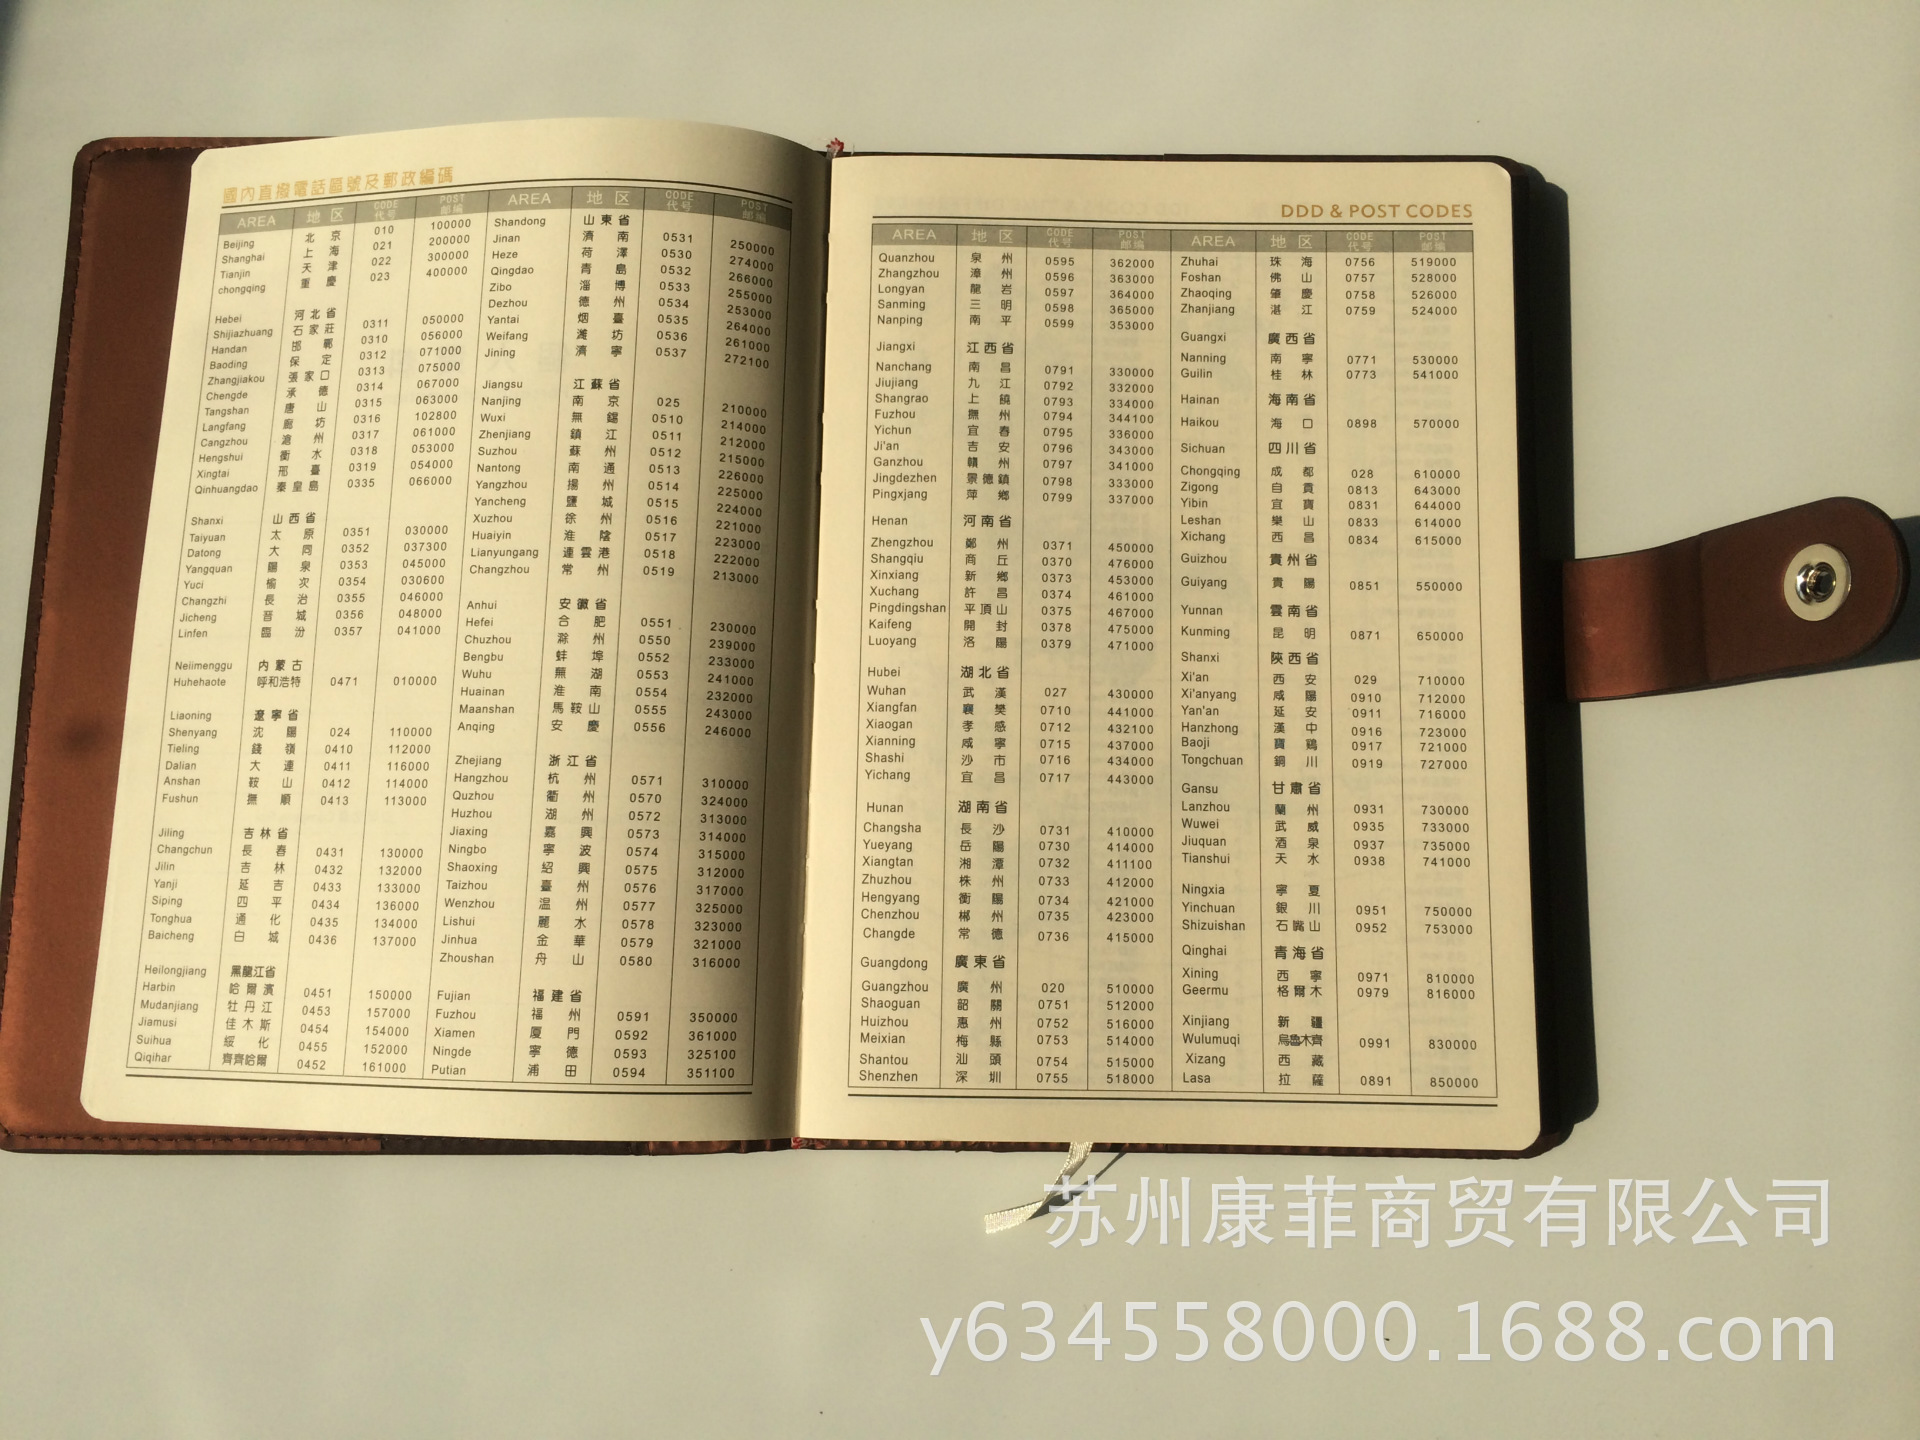 國内直撥電話區號及郵政編碼
AREA 地区 CODE代号 POST邮编
Beijing 北京 010 100000
Shanghai 上海 021 200000
Tianjin 天津 022 300000
chongqing 重慶 023 400000
Hebei 河北省
Shijiazhuang 石家莊 0311 050000
Handan 邯鄲 0310 056000
Baoding 保定 0312 071000
Zhangjiakou 張家口 0313 075000
Chengde 承德 0314 067000
Tangshan 唐山 0315 063000
Langfang 廊坊 0316 102800
Cangzhou 滄州 0317 061000
Hengshui 衡水 0318 053000
Xingtai 邢臺 0319 054000
Qinhuangdao 秦皇島 0335 066000
Shanxi 山西省
Taiyuan 太原 0351 030000
Datong 大同 0352 037300
Yangquan 陽泉 0353 045000
Yuci 榆次 0354 030600
Changzhi 長治 0355 046000
Jicheng 晋城 0356 048000
Linfen 臨汾 0357 041000
Neiimenggu 内蒙古
Huhehaote 呼和浩特 0471 010000
Liaoning 遼寧省
Shenyang 沈陽 024 110000
Tieling 錢嶺 0410 112000
Dalian 大連 0411 116000
Anshan 鞍山 0412 114000
Fushun 撫順 0413 113000
Jiling 吉林省
Changchun 長春 0431 130000
Jilin 吉林 0432 132000
Yanji 延吉 0433 133000
Siping 四平 0434 136000
Tonghua 通化 0435 134000
Baicheng 白城 0436 137000
Heilongjiang 黑龍江省
Harbin 哈爾濱 0451 150000
Mudanjiang 牡丹江 0453 157000
Jiamusi 佳木斯 0454 154000
Suihua 綏化 0455 152000
Qiqihar 齊齊哈爾 0452 161000
AREA 地区 CODE代号 POST邮编
Shandong 山東省
Jinan 濟南 0531 250000
Heze 荷澤 0530 274000
Qingdao 青島 0532 266000
Zibo 淄博 0533 255000
Dezhou 德州 0534 253000
Yantai 烟臺 0535 264000
Weifang 濰坊 0536 261000
Jining 濟寧 0537 272100
Jiangsu 江蘇省
Nanjing 南京 025 210000
Wuxi 無錫 0510 214000
Zhenjiang 鎮江 0511 212000
Suzhou 蘇州 0512 215000
Nantong 南通 0513 226000
Yangzhou 揚州 0514 225000
Yancheng 鹽城 0515 224000
Xuzhou 徐州 0516 221000
Huaiyin 淮陰 0517 223000
Lianyungang 連雲港 0518 222000
Changzhou 常州 0519 213000
Anhui 安徽省
Hefei 合肥 0551 230000
Chuzhou 滁州 0550 239000
Bengbu 蚌埠 0552 233000
Wuhu 蕪湖 0553 241000
Huainan 淮南 0554 232000
Maanshan 馬鞍山 0555 243000
Anqing 安慶 0556 246000
Zhejiang 浙江省
Hangzhou 杭州 0571 310000
Quzhou 衢州 0570 324000
Huzhou 湖州 0572 313000
Jiaxing 嘉興 0573 314000
Ningbo 寧波 0574 315000
Shaoxing 紹興 0575 312000
Taizhou 臺州 0576 317000
Wenzhou 温州 0577 325000
Lishui 麗水 0578 323000
Jinhua 金華 0579 321000
Zhoushan 舟山 0580 316000
Fujian 福建省
Fuzhou 福州 0591 350000
Xiamen 厦門 0592 361000
Ningde 寧德 0593 325100
Putian 浦田 0594 351100
DDD & POST CODES
AREA 地区 CODE代号 POST邮编
Quanzhou 泉州 0595 362000
Zhangzhou 漳州 0596 363000
Longyan 龍岩 0597 364000
Sanming 三明 0598 365000
Nanping 南平 0599 353000
Jiangxi 江西省
Nanchang 南昌 0791 330000
Jiujiang 九江 0792 332000
Shangrao 上饒 0793 334000
Fuzhou 撫州 0794 344100
Yichun 宜春 0795 336000
Ji'an 吉安 0796 343000
Ganzhou 贛州 0797 341000
Jingdezhen 景德鎮 0798 333000
Pingxjang 萍鄉 0799 337000
Henan 河南省
Zhengzhou 鄭州 0371 450000
Shangqiu 商丘 0370 476000
Xinxiang 新鄉 0373 453000
Xuchang 許昌 0374 461000
Pingdingshan 平頂山 0375 467000
Kaifeng 開封 0378 475000
Luoyang 洛陽 0379 471000
Hubei 湖北省
Wuhan 武漢 027 430000
Xiangfan 襄樊 0710 441000
Xiaogan 孝感 0712 432100
Xianning 咸寧 0715 437000
Shashi 沙市 0716 434000
Yichang 宜昌 0717 443000
Hunan 湖南省
Changsha 長沙 0731 410000
Yueyang 岳陽 0730 414000
Xiangtan 湘潭 0732 411100
Zhuzhou 株州 0733 412000
Hengyang 衡陽 0734 421000
Chenzhou 郴州 0735 423000
Changde 常德 0736 415000
Guangdong 廣東省
Guangzhou 廣州 020 510000
Shaoguan 韶關 0751 512000
Huizhou 惠州 0752 516000
Meixian 梅縣 0753 514000
Shantou 汕頭 0754 515000
Shenzhen 深圳 0755 518000
AREA 地区 CODE代号 POST邮编
Zhuhai 珠海 0756 519000
Foshan 佛山 0757 528000
Zhaoqing 肇慶 0758 526000
Zhanjiang 湛江 0759 524000
Guangxi 廣西省
Nanning 南寧 0771 530000
Guilin 桂林 0773 541000
Hainan 海南省
Haikou 海口 0898 570000
Sichuan 四川省
Chongqing 成都 028 610000
Zigong 自貢 0813 643000
Yibin 宜賓 0831 644000
Leshan 樂山 0833 614000
Xichang 西昌 0834 615000
Guizhou 貴州省
Guiyang 貴陽 0851 550000
Yunnan 雲南省
Kunming 昆明 0871 650000
Shanxi 陝西省
Xi'an 西安 029 710000
Xi'anyang 咸陽 0910 712000
Yan'an 延安 0911 716000
Hanzhong 漢中 0916 723000
Baoji 寶鷄 0917 721000
Tongchuan 銅川 0919 727000
Gansu 甘肅省
Lanzhou 蘭州 0931 730000
Wuwei 武威 0935 733000
Jiuquan 酒泉 0937 735000
Tianshui 天水 0938 741000
Ningxia 寧夏
Yinchuan 銀川 0951 750000
Shizuishan 石嘴山 0952 753000
Qinghai 青海省
Xining 西寧 0971 810000
Geermu 格爾木 0979 816000
Xinjiang 新疆
Wulumuqi 烏魯木齊 0991 830000
Xizang 西藏
Lasa 拉薩 0891 850000
苏州康菲商贸有限公司
y634558000.1688.com